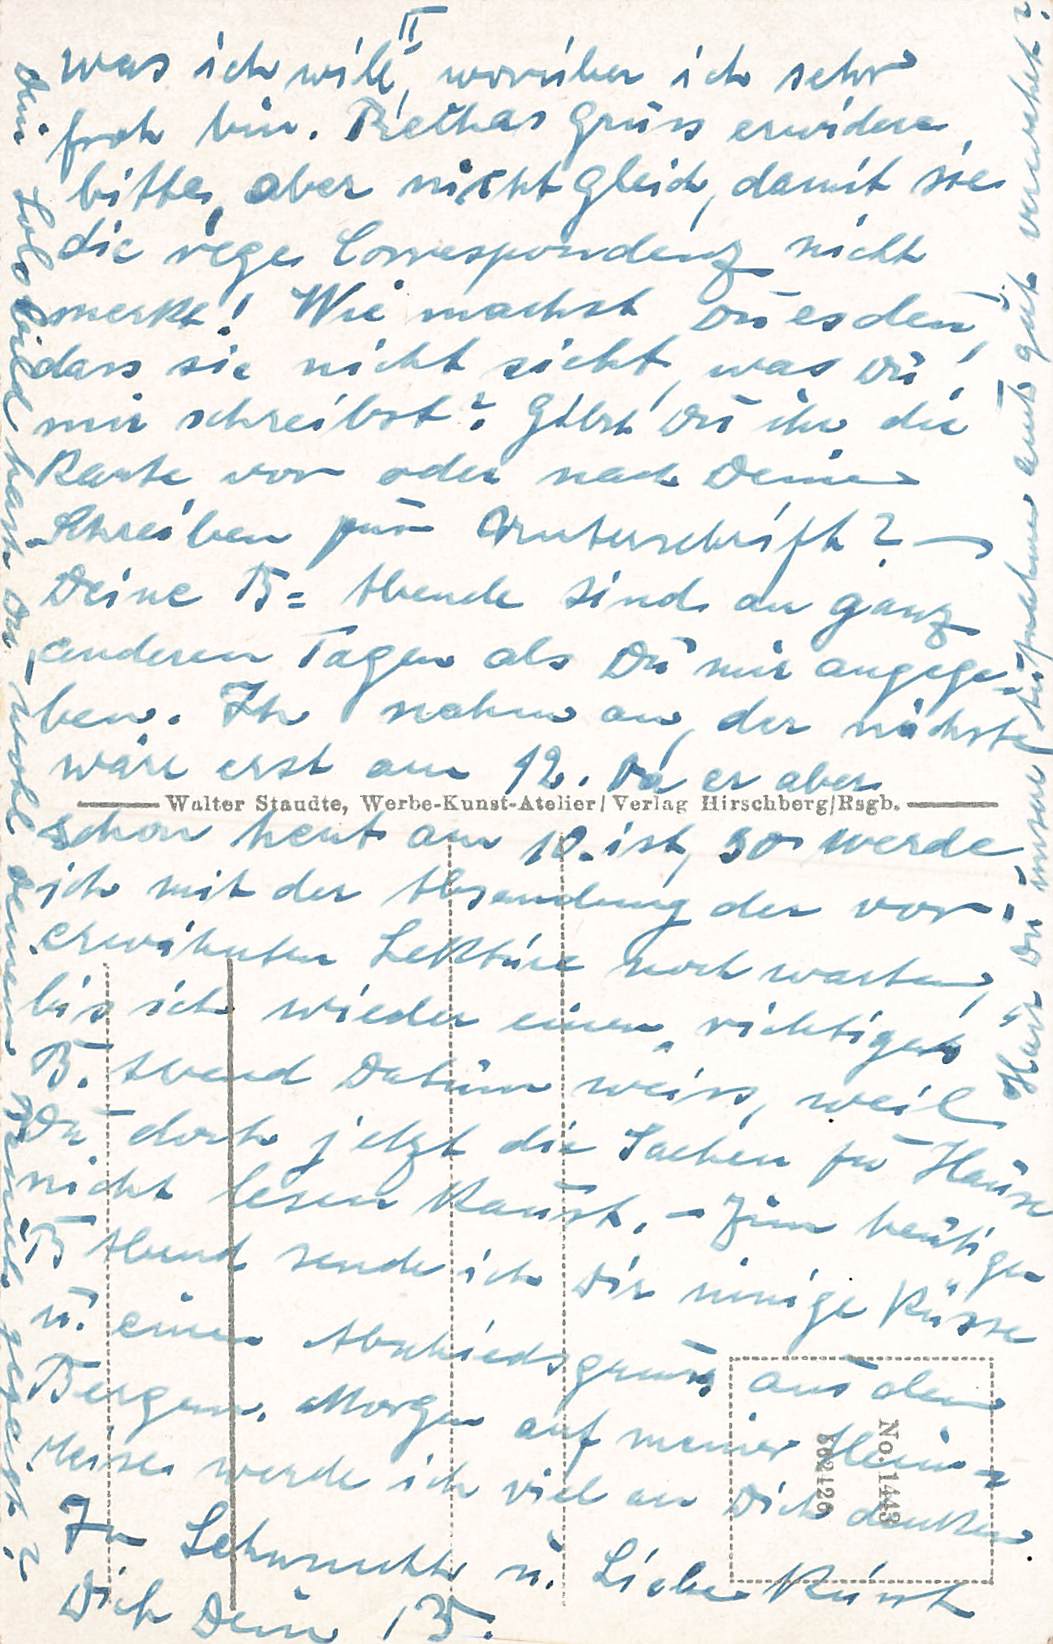 II
was ich will, worüber ich sehr
froh bin. Rethas Gruss erwidere
bitte, aber nicht gleich, damit sie
die rege Correspondenz nicht
merkt! Wie machst Du es den,
dass sie nicht sieht, was Du
mir schreibst? Gibst Du ihr die
Karte vor oder nach Deine
Schreiben zur Unterschrift? —
Deine B= Abende sind an ganz
anderen Tagen als Du mir angege-
ben. Ich nahm an, der nächste
wäre erst am 12. Da er aber
Walter Staudte, Werbe-Kunst-Atelier/Verlag Hirschberg/Rsgb.
schon heut am 10. ist, so werde
ich mit der Absendung der vor-
erwähnten Lektüre noch warten,
bis ich wieder einen richtigen
B. Abend Datum weiss, weil
Du doch jetzt die Sachen zu Hause
nicht lesen kannst. — Zum heutigen
B Abend sende ich Dir innige Küsse
u. einen Abschiedsgruss aus den
Bergen. Morgen auf meiner Heim=
reise werde ich viel an Dich denken
In Sehnsucht u. Liebe küsst
Dich Dein B.
No. 1443
562126
Hast Du unsere Aufnahmen auch gut verwahrt?
Dein hast Du wohl gezeigt?